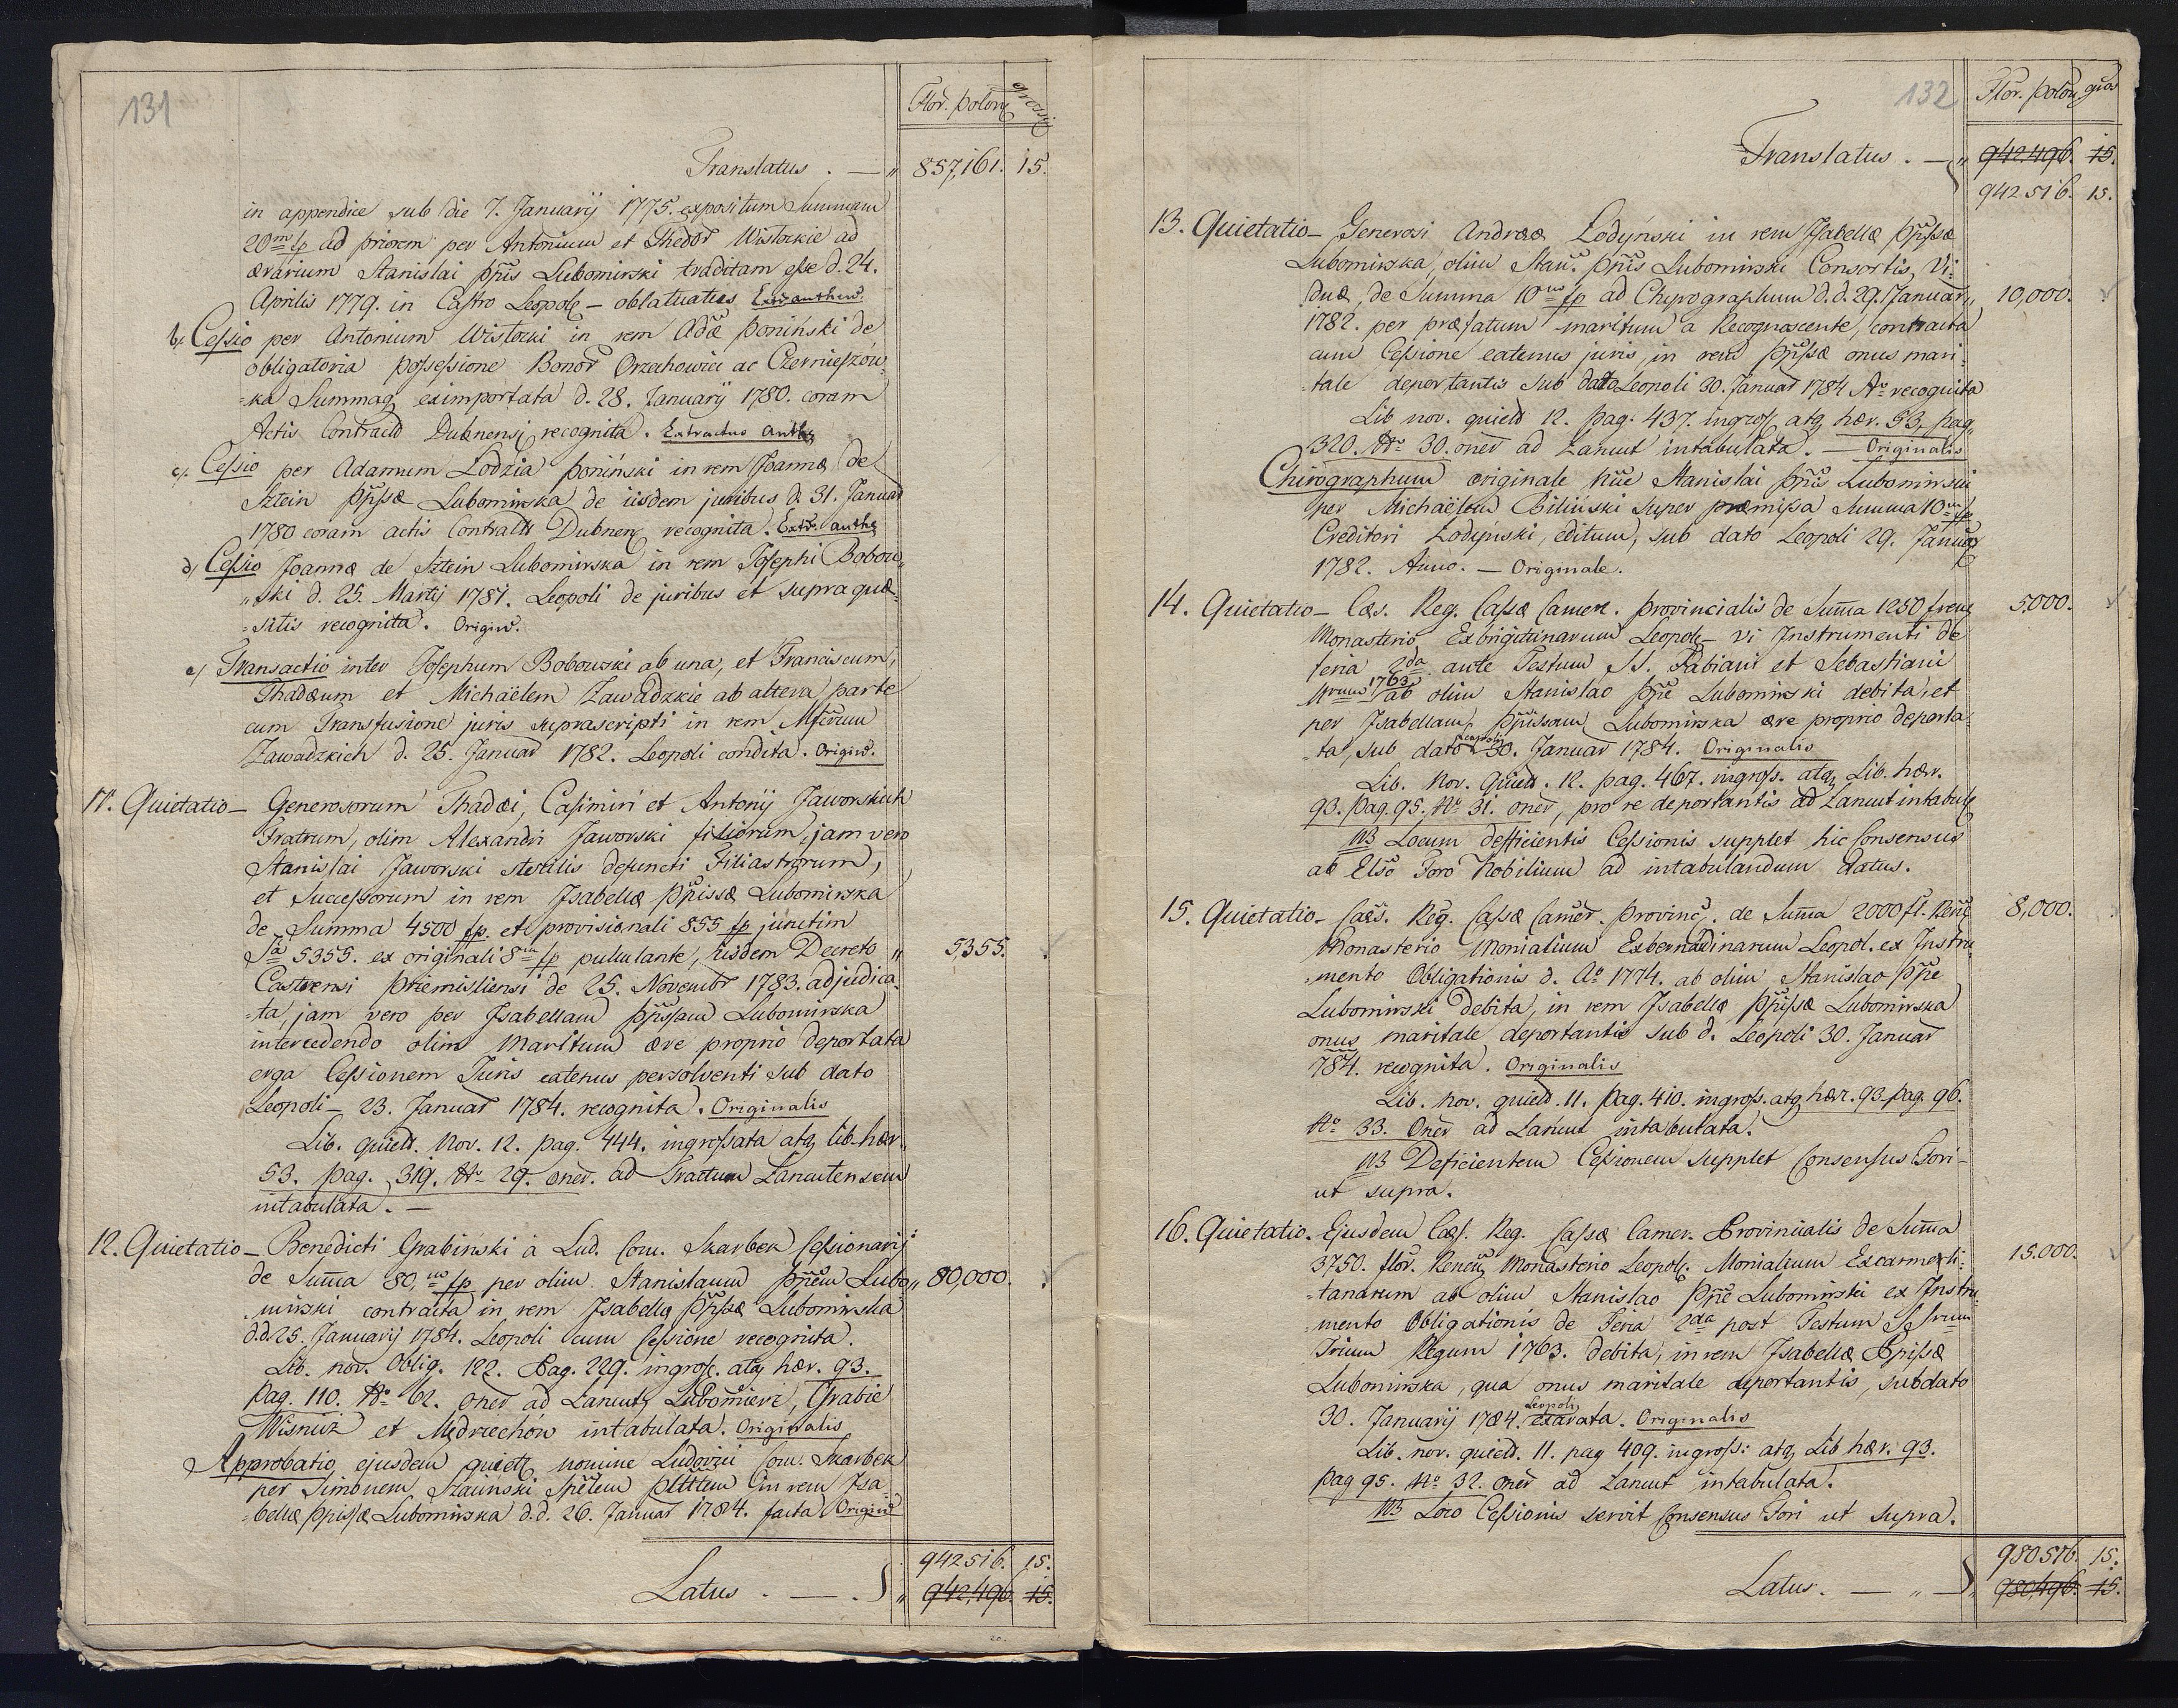 131
Flor. polon. grossi
Translatus . — „ 857,161. 15.
in appendice sub die 7. Januarij 1775. expositum Summam
20m fp ad priorem per Antonium et Thedor Wisłockie ad
ærarium Stanislai Ppis Lubomirski traditam esse d. 24.
Aprilis 1779. in Castro Leopol — oblatuatus
b/ Cessio per Antonium Wisłocki in rem Adæ Poniński de
obligatoria possessione Bonor Orzchowice ac Czernieszów-
-ka Summaq eximportata d. 28. Januarij 1780. coram
Actis Contractu Dubnensi recognita. Extractus anth
c/. Cessio per Adamum Łodzia Poniński in rem Joannæ de
Sztein Ppissæ Lubomirska de iisdem juribus d. 31. Januar
1780 coram actis Contractu Dubnen recognita. Extr. anthe
d/ Cessio Joannæ de Sztein Lubomirska in rem Josephi Bobow-
„ski d. 25. Martij 1781. Leopoli de juribus et supra quæ-
-sitis recognita. Origin.
e/ Transactio inter Josephum Bobowski ab una, et Franciscum,
Thadæum et Michaëlem Zawadzkie ab altera parte
cum Transfusione juris suprascripti in rem Mficrum
Zawadzkich d. 25. Januar 1782. Leopoli condita. Origin.
11. Quietatio — Generosorum Thadæi, Casimiri et Antonij Jaworskich
Fratrum, olim Alexandri Jaworski filiorum, jam vero
Stanislai Jaworski sterilis defuncti Filiastrorum,
et Successorum in rem Isabellæ Ppissæ Lubomirska
de Summa 4500 fp. et provisionali 855 fp junctim
Sa 5355. ex originali 5m fp pullulante, iisdem Decreto „ 5355.
Castrensi Præmisliensi de 25. Novembr 1783. adjudica-
-ta, jam vero per Isabellam Ppissam Lubomirska
intercedendo olim Maritum ære proprio deportata
erga Cessionem Juris eatenus persolventi sub dato
Leopoli — 23. Januar 1784. recognita. Originalis
Lib. quiett. Nov. 12. pag. 444. ingrossata atq lib. hær.
53. pag. 319. No 29. oner. ad Tractum Lancutensem
intabulata. —
12. Quietatio — Benedicti Grabiński à Lud. Com. Skarbek Cessionarij
de Suma 80,m fp per olim Stanislaum Ppem Lubo„ 80,000.
-mirski contracta in rem Isabellæ Ppissæ Lubomirska
d.d. 25. Januarij 1784. Leopoli cum Cessione recognita.
Lib. nov. Oblig. 122. Pag. 229. ingross. atq hær. 93.
pag. 110. No 62. oner ad Lancut, Lubomierz, Grabie
Wisnicz et Mędrzechów intabulata. Originalis
Approbatio ejusdem quiett nomine Ludovici Com. Skarbek
per Simonem Szaiński Splem Pltttem in rem Isa-
-bellæ Ppissæ Lubomirska d.d. 26. Januar 1784. facta Origin
942516. 15.
Latus . — . „ 942,496. 15.
132
Flor. polon gros
Translatus . — „ 942,496. 15.
942516. 15.
13. Quietatio — Generosi Andreæ Łodyński in rem Isabellæ Ppissæ
Lubomirska, olim Stan. Ppis Lubomirski Consortis, Vi-
duæ, de Summa 10m fp ad Chyrographum d.d. 29. Januar „ 10,000.
1782. per præfatum maritum a Recognoscente, contracta
cum Cessione eatenus juris in rem Ppissæ onus mari-
-tale deportantis sub dato Leopoli 30. Januar 1784 Ao recognita
Lib nov. quiett 12. pag. 437. ingross. atq hær. 53. pag.
320. No 30. oner ad Lancut intabulata. — Originalis
Chirographum originale hue Stanislai Ppis Lubomirski
per Michaëlem Biliński super præmissa Summa 10m fp
Creditori Łodyński, editum, sub dato Leopoli 29. Januar
1782. Anno. — Originale.
14. Quietatio — Cæs. Reg. Cassæ Camer. provincialis de Suma 1250 f renen 5000.
Monasterio Exbrigittinarum Leopol — vi Instrumenti de
feria 2da ante Festum SS. Fabiani et Sebastiani
Mrum 1763 ab olim Stanislao Ppe Lubomirski debita, et
per Isabellam Ppissam Lubomirska ære proprio deporta-
-ta, sub dato Leopoli 30. Januar 1784. Originalis
Lib. Nov. Quiett. 12. pag. 467. ingross. atq Lib. hær.
93. Pag. 95. No 31. oner, pro re deportantis ad Lancut intabul
NB Locum defficientis Cessionis supplet hic Consensus
ab Elso Foro Nobilium ad intabulandum datus.
15. Quietatio — Caes. Reg. Cassæ Camer. Provinc. de Suma 2000 fl. Ren 8,000.
Monasterio Monialium Exbernardinarum Leopol. ex Instru-
-mento Obligationis d. Ao 1774. ab olim Stanislao Ppe
Lubomirski debita, in rem Isabellæ Ppissæ Lubomirska
onus maritale deportantis sub d. Leopoli 30. Januar
784. recognita. Originalis
Lib. nov. quiett. 11. pag. 410. ingross. atq hær. 93. pag. 96.
No 33. Oner ad Lancut intabulata.
NB Deficientem Cessionem supplet Consensus Fori
ut supra.
16. Quietatio. Ejusdem Cæs. Reg. Cassæ Camer. Provincialis de Suma
3750. flor. Renen Monasterio Leopol. Monialium Excarmeli- 15.000.
-tanarum ab olim Stanislao Ppe Lubomirski ex Instru-
-mento Obligationis de Feria 2da post Festum SSrum
Trium Regum 1763. debita, in rem Isabellæ Ppissæ
Lubomirska, qua onus maritale deportantis, sub dato
30. Januarij 1784. Leopoli exarata. Originalis
Lib. nov. quiett. 11. pag 409. ingross: atq Lib hær. 93.
pag 95. No 32. oner ad Lancut intabulata.
NB Loco Cessionis servit Consensus Fori ut supra.
980516. 15.
Latus. — „ — 980,496. 15.